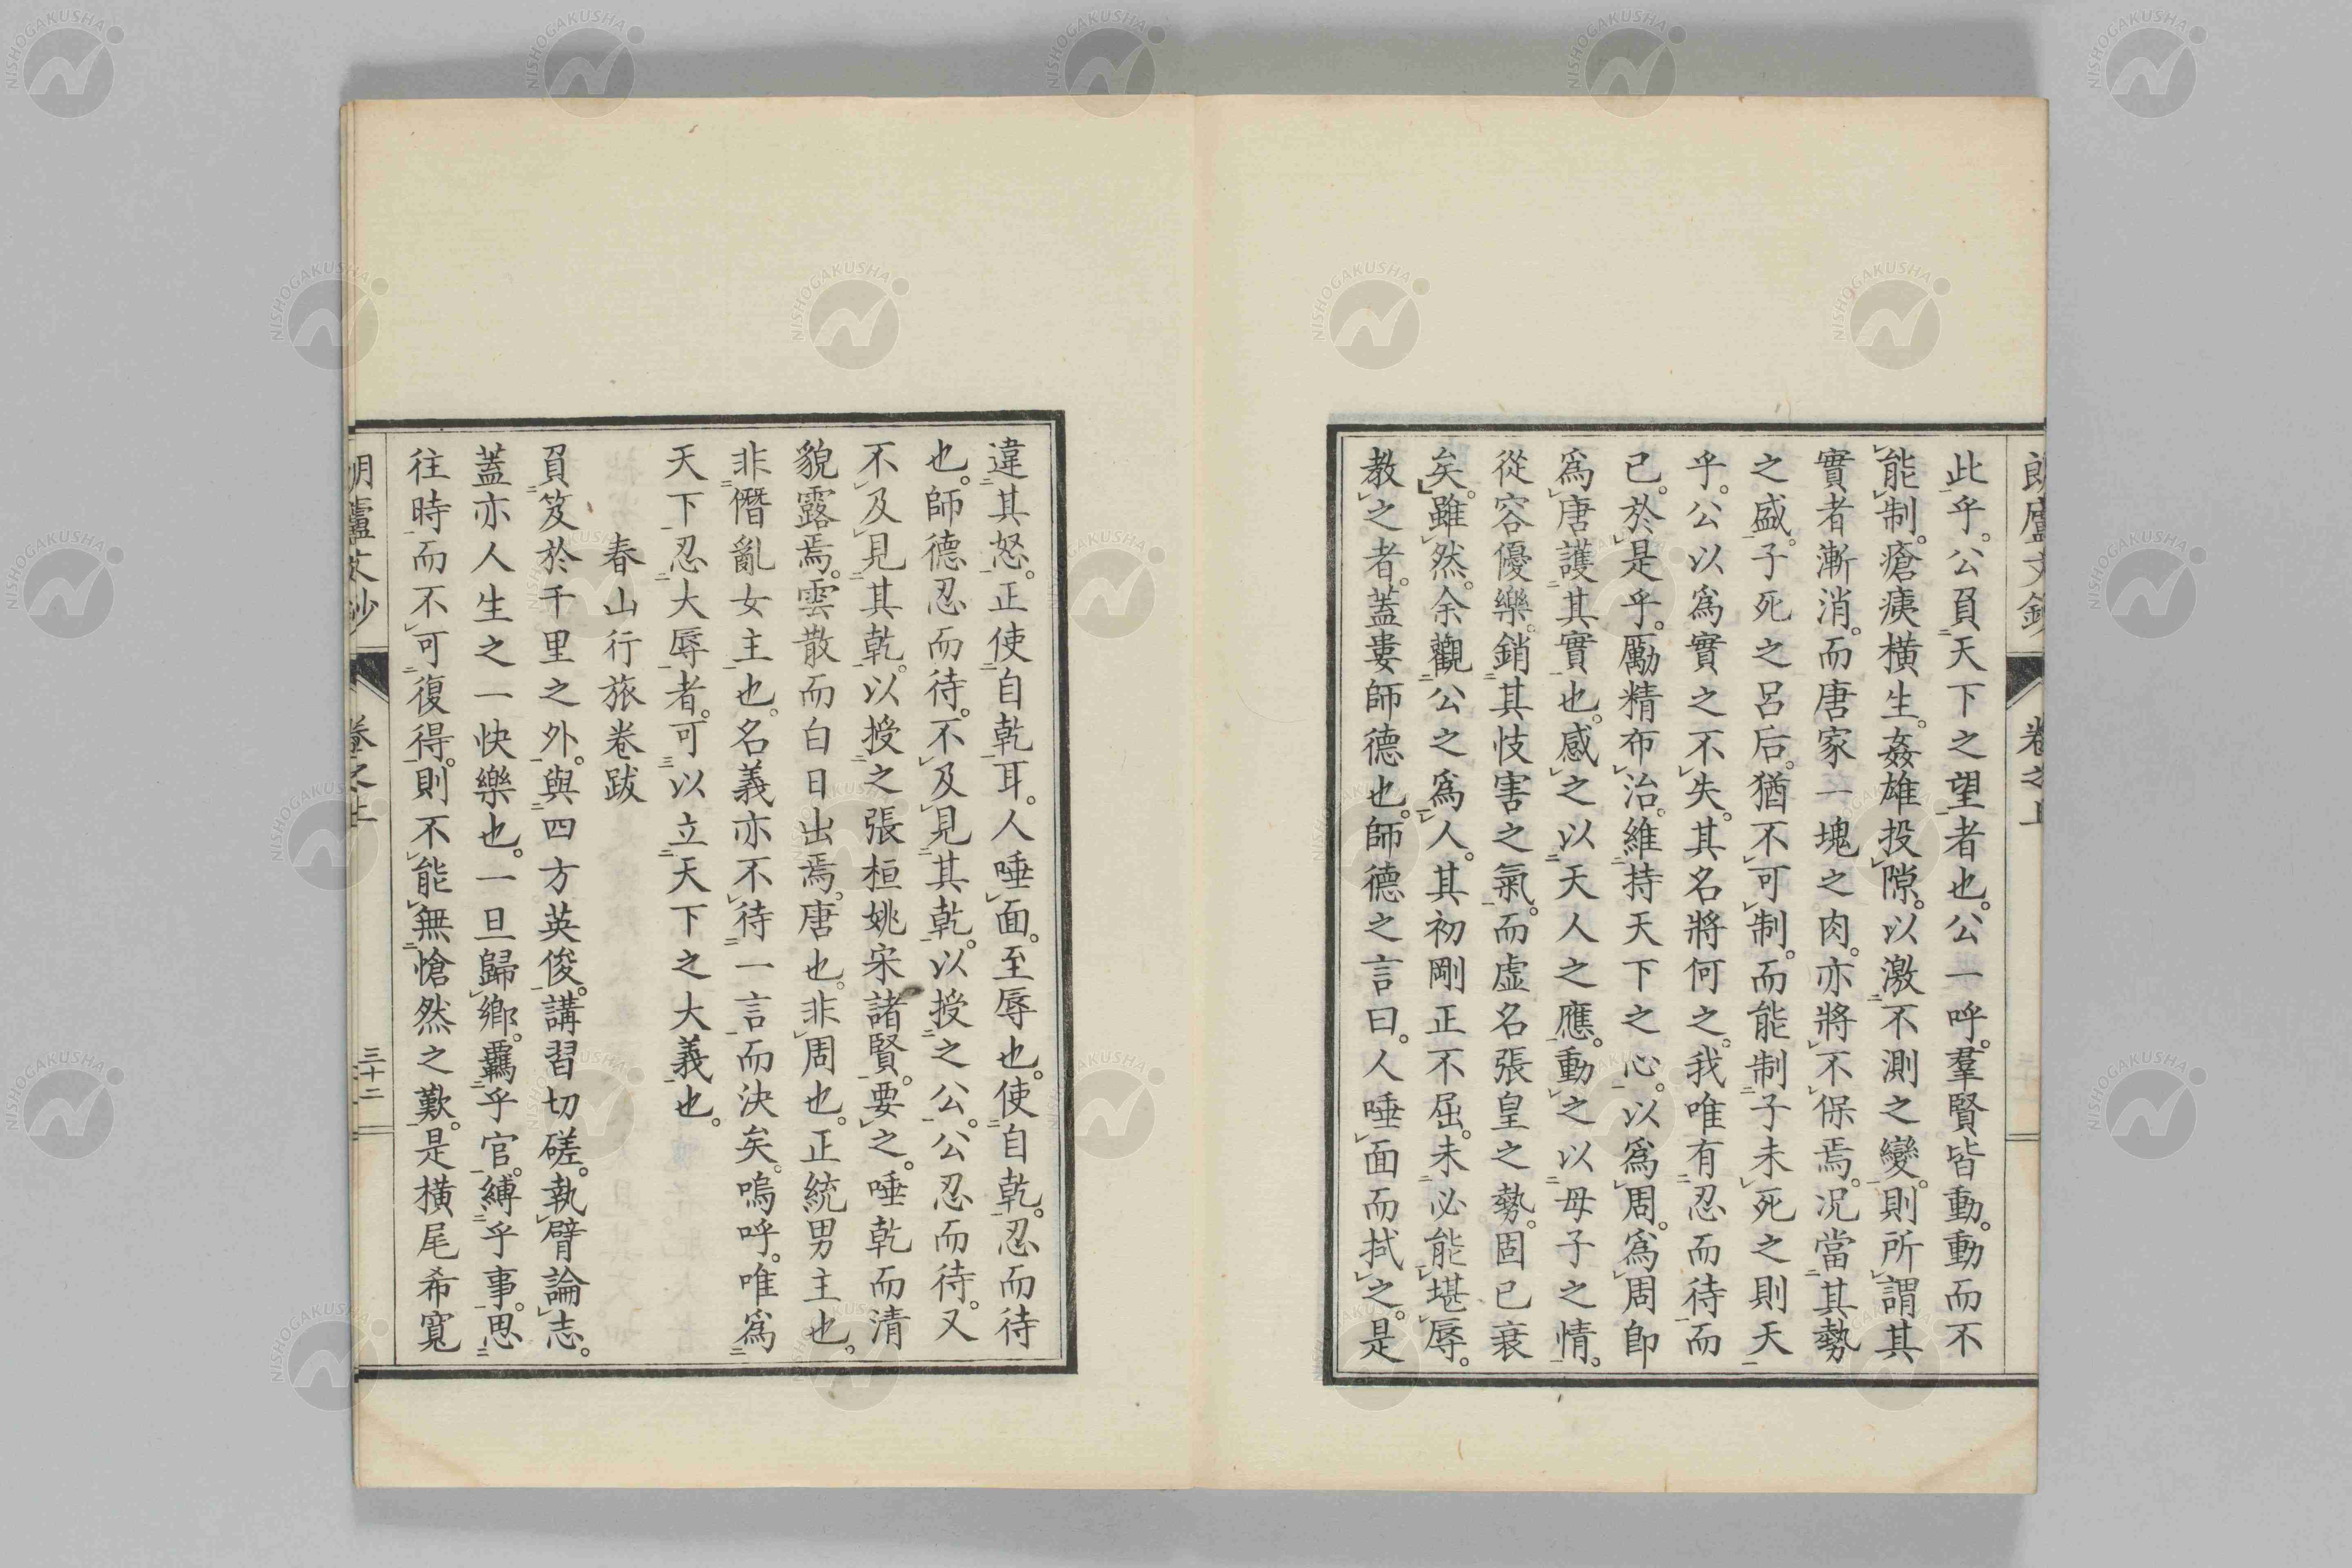 此乎。公負天下之望者也。公一呼。羣賢皆動。動而不
能制。瘡痍橫生。姦雄投隙。以激不測之變。則所謂其
實者漸消。而唐家一塊之肉。亦將不保焉。況當其勢
之盛。子死之呂后。猶不可制。而能制子未死之則天
乎。公以爲實之不失。其名將何之。我唯有忍而待而
已。於是乎。勵精布治。維持天下之心。以爲周。爲周卽
爲唐護其實也。感之以天人之應。動之以母子之情。
從容優樂。銷其忮害之氣。而虛名張皇之勢。固已衰
矣。雖然。余觀公之爲人。其初剛正不屈。未必能堪辱。
教之者。蓋婁師德也。師德之言曰。人唾面而拭之。是
違其怒。正使自乾耳。人唾面。至辱也。使自乾。忍而待
也。師德忍而待。不及見其乾。以授之公。公忍而待。又
不及見其乾。以授之張桓姚宋諸賢。要之。唾乾而清
貌露焉。雲散而白日出焉。唐也。非周也。正統男主也。
非僭亂女主也。名義亦不待一言而決矣。嗚呼。唯爲
天下忍大辱者。可以立天下之大義也。
春山行旅卷跋
負笈於千里之外。與四方英俊。講習切磋。執臂論志。
蓋亦人生之一快樂也。一旦歸鄉。羈乎官。縛乎事。思
往時而不可復得。則不能無愴然之歎。是橫尾希寬
卷之上
三十二
NISHOGAKUSHA